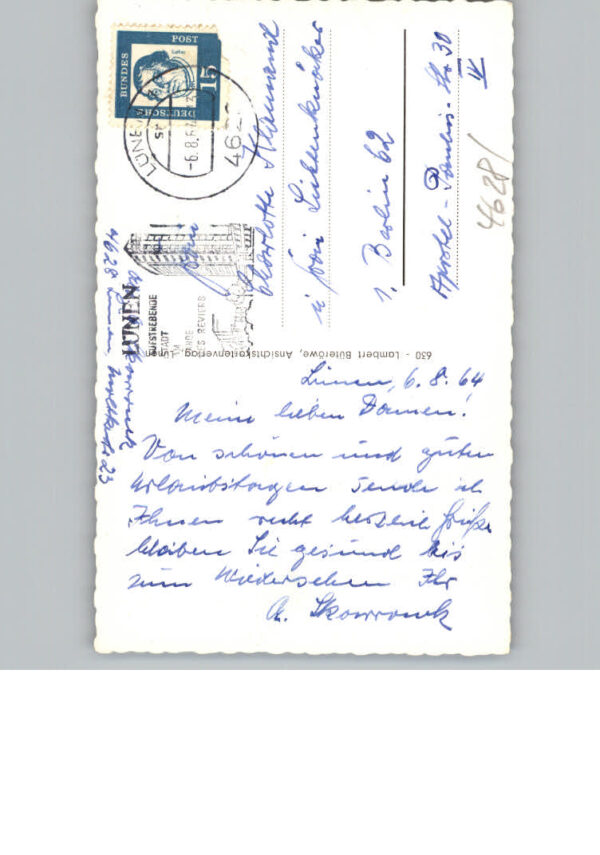 DEUTSCHE
BUNDES
POST
Luther
15
LÜNEN
-6.8.64
462
LÜNEN
AUFSTREBENDE
STADT
AM
RANDE
DES REVIERS
Frau
Charlotte
u Frau
1. Berlin 62
Apostel-Paulus-Str 30
IV
4628/
630 - Lambert Büterowe, Ansichtskartenverlag, Lünen
A. Skowronek
4628 Lünen
23
Lünen, 6.8.64
Meine lieben Damen!
Von schönen und guten
Urlaubstagen sende ich
Ihnen recht herzliche Grüße
bleiben Sie gesund bis
zum Wiedersehen Ihr
A. Skowronek